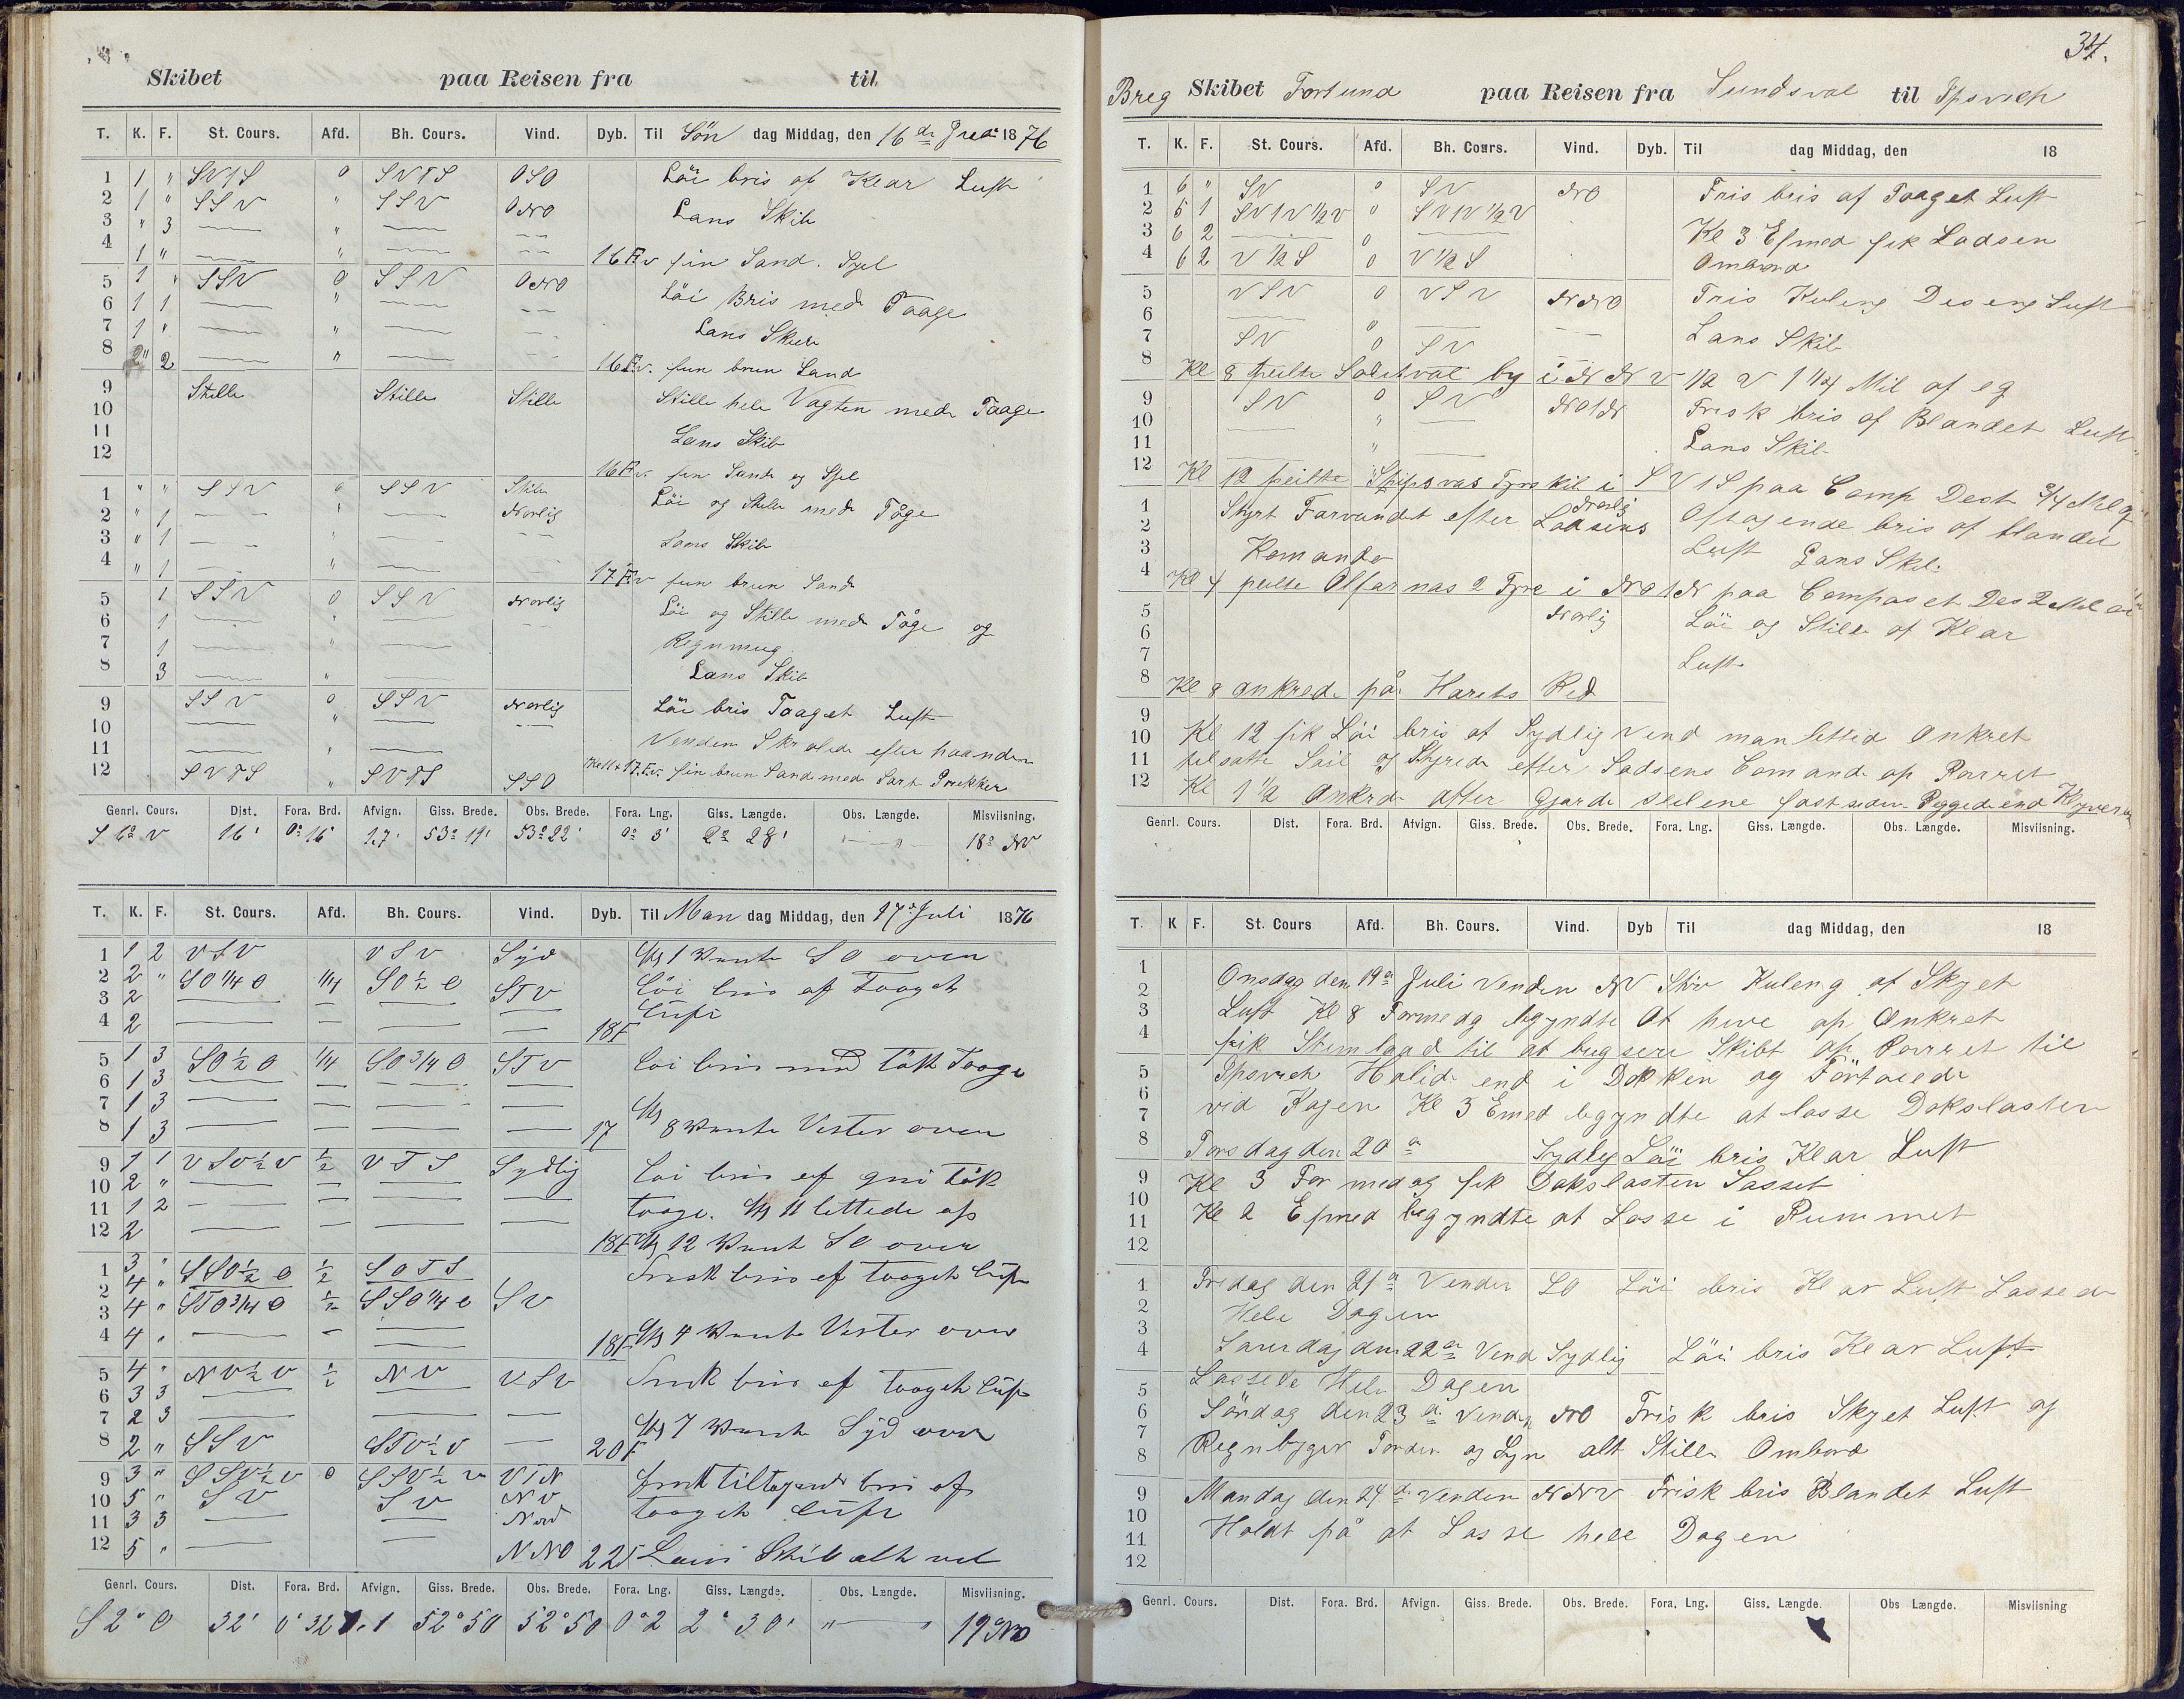 Skibet paa Reisen fra til
T. K. F. St. Cours. Afd. Bh. Cours. Vind. Dyb. Til Søn dag Middag, den 16de 1876
1 1 " SVTS 0 SVTS OSO Löi bris af Klar Luft
2 1 " SSV " SSV ONO Lans Skib
3 " 3 — " — — —
4 1 " — " — — — 16 Fv fin Sand.
5 1 " SSV 0 SSV ONO Löi Bris med Taage
6 1 1 — " — — —
7 1 " — " — — Lans
8 2 — " — — — 16 Fv. brun Sand
9 Stille Stille Stille Stille hele Vagten med Taage
10
11 Lans Skib
12 16 Fv. fin Sand og
1 " " SSV " SSV Stille Löi og Stille med Tåge
2 " 1 — " — Norlig
3 " 1 — " — — — Lans Skib
4 " 1 — " — — 17 Fv brun Sand
5 1 SSV 0 SSV Norlig Löi og Stille med Tåge og
6 1 — " — —
7 1 — " —
8 3 — " — Lans Skib
9 SSV 0 SSV Norlig Löi bris Taaget Luft
10 — " — — —
11 — " — Venden efter haanden
12 SVTS " SVTS SSO 17 Fv. fin brun Sand med Sort Prikker
Genrl. Cours. Dist. Fora. Brd. Afvign. Giss. Brede. Obs. Brede. Fora. Lng. Giss. Længde. Obs. Længde. Misviisning.
16' 0° 16' 1.7' 53° 19' 53° 22' 0° 3' 2° 28' " — " 18° NV
T. K. F. St. Cours. Afd. Bh. Cours. Vind. Dyb. Til Man dag Middag, den 17de Juli 1876
1 1 2 VSV VSV Syd Kl 1 Vente SO over
2 2 " SO 1/4 O 1/4 SO 1/2 O STV löi bris af Taaget
3 2 — — — — Luft
4 2 — — — — 18 F
5 1 3 SO 1/2 O 1/4 SO 3/4 O STV löi bris med tåk Taage
6 1 3 — — — —
7 1 3 — — — —
8 1 3 — — — — 17 Kl 8 Vente Vester over
9 1 1 VSV 1/2 V 1/2 VTS Sydlig löi bris af tåk
10 2 " — — — —
11 1 2 — — — — taage. Kl 11 lettede op
12 2 — — — — 18 F Kl 12 Vent SO over
1 3 " SSO 1/2 O 1/2 SOTS Frisk bris af taaget luft
2 4 "
3 4 " STO 3/4 O 1/2 SSO 1/4 O SV
4 4 " — — — 18 F Kl 4 Vente Vester over
5 4 " NV 1/2 V 1/2 NV VSV Frisk bris af taaget luft
6 3 3 — —
7 2 3 — — — Kl 7 Vente Syd over
8 2 " SSV STV 1/2 V — 20 F
9 3 " SSV 1/2 V 0 SSV 1/2 V VTN Frisk tiltagende bris af
10 5 " SV SV NV
11 3 3 — — Nord taaget luft
12 5 " — — NNO 22 F Lens Skib alt vel
Genrl. Cours. Dist. Fora. Brd. Afvign. Giss. Brede. Obs. Brede. Fora. Lng. Giss. Længde. Obs. Længde. Misviisning.
S 2° O 32' 0° 32 1.1 52° 50 52° 50 0° 2 2° 30' " — " 19°
34.
Breg Skibet Fortuna paa Reisen fra Sundsval til Ipsvich
T. K. F. St. Cours. Afd. Bh. Cours. Vind. Dyb. Til dag Middag, den 18
1 6 " SV 0 SV NO Fris bris af Taaget Luft
2 5 1 SVTV 1/2 V 0 SVTV 1/2 V
3 6 2 — — Kl 3 Efmed fik Lodsen
4 6 2 V 1/2 S 0 V 1/2 S Ombord
5 VSV 0 VSV NNO Fris Kuleng Luft
6 — —
7 SV 0 SV — Lans Skib
8 Kl 8 peilte by i NNV 1/2 V 1 1/4 Mil af
9 SV 0 SV NOTN Frisk bris af Blandet Luft
10 — " —
11 — " — Lans Skib
12 Kl 12 peilte Fyrskib i SVTS paa Comp Dest 3/4 Mil
1 Styrt Farvandet efter Lodsens Norlig Oftagende bris af blandet
2
3 Komando Luft Lans Skib
4 Kl 4 peilte 2 Fyre i NOTN paa Compaset Des 2 Mil
5 Norlig Löi og Stille af Klar
6
7 Luft
8 Kl 8 ankrede på Red
9
10 Kl 12 fik Löi bris af Sydlig vend man lettede Ankret
11 tilsatte Seil og Styrede efter Lodsens Comando op
12 Kl 1 1/2 Ankrede
Genrl. Cours. Dist. Fora. Brd. Afvign. Giss. Brede. Obs. Brede. Fora. Lng. Giss. Længde. Obs. Længde. Misviisning.
T. K F. St. Cours Afd. Bh. Cours. Vind. Dyb Til dag Middag, den 18
1
2 Onsdag den 19de Juli Venden NV Stiv Kuleng af Skyet
3 Luft Kl 8 Formedag begyndte At hive op Ankret
4 fik til at bugsere Skibt op til
5 Ipsvich Halede end i Dokken og
6
7 vid Kagen Kl 3 Emed begyndte at losse Dokslasten
8 Torsdag den 20de Sydlig Löi bris Klar Luft
9 Kl 3 Formedag fik Dokslasten Losset
10
11 Kl 2 Efmed begyndte at Losse i Rummet
12
1 Fredag den 21de Venden SO Löi bris Klar Luft Lossede
2 Hele Dagen
3
4 Lørdag den 22de Vend Sydlig Löi bris Klar Luft
5 Lossede Hele Dagen
6 Söndag den 23de Venden NO Frisk bris Skyet Luft og
7
8 Regnbyger Torden og Lyn alt Stille Ombord
9 Mandag den 24de Venden NNV Frisk bris Blandet Luft
10
11 Holdt på at Losse hele Dagen
12
Genrl. Cours. Dist. Fora. Brd. Afvign. Giss. Brede. Obs. Brede. Fora. Lng. Giss. Længde. Obs Længde. Misviisning